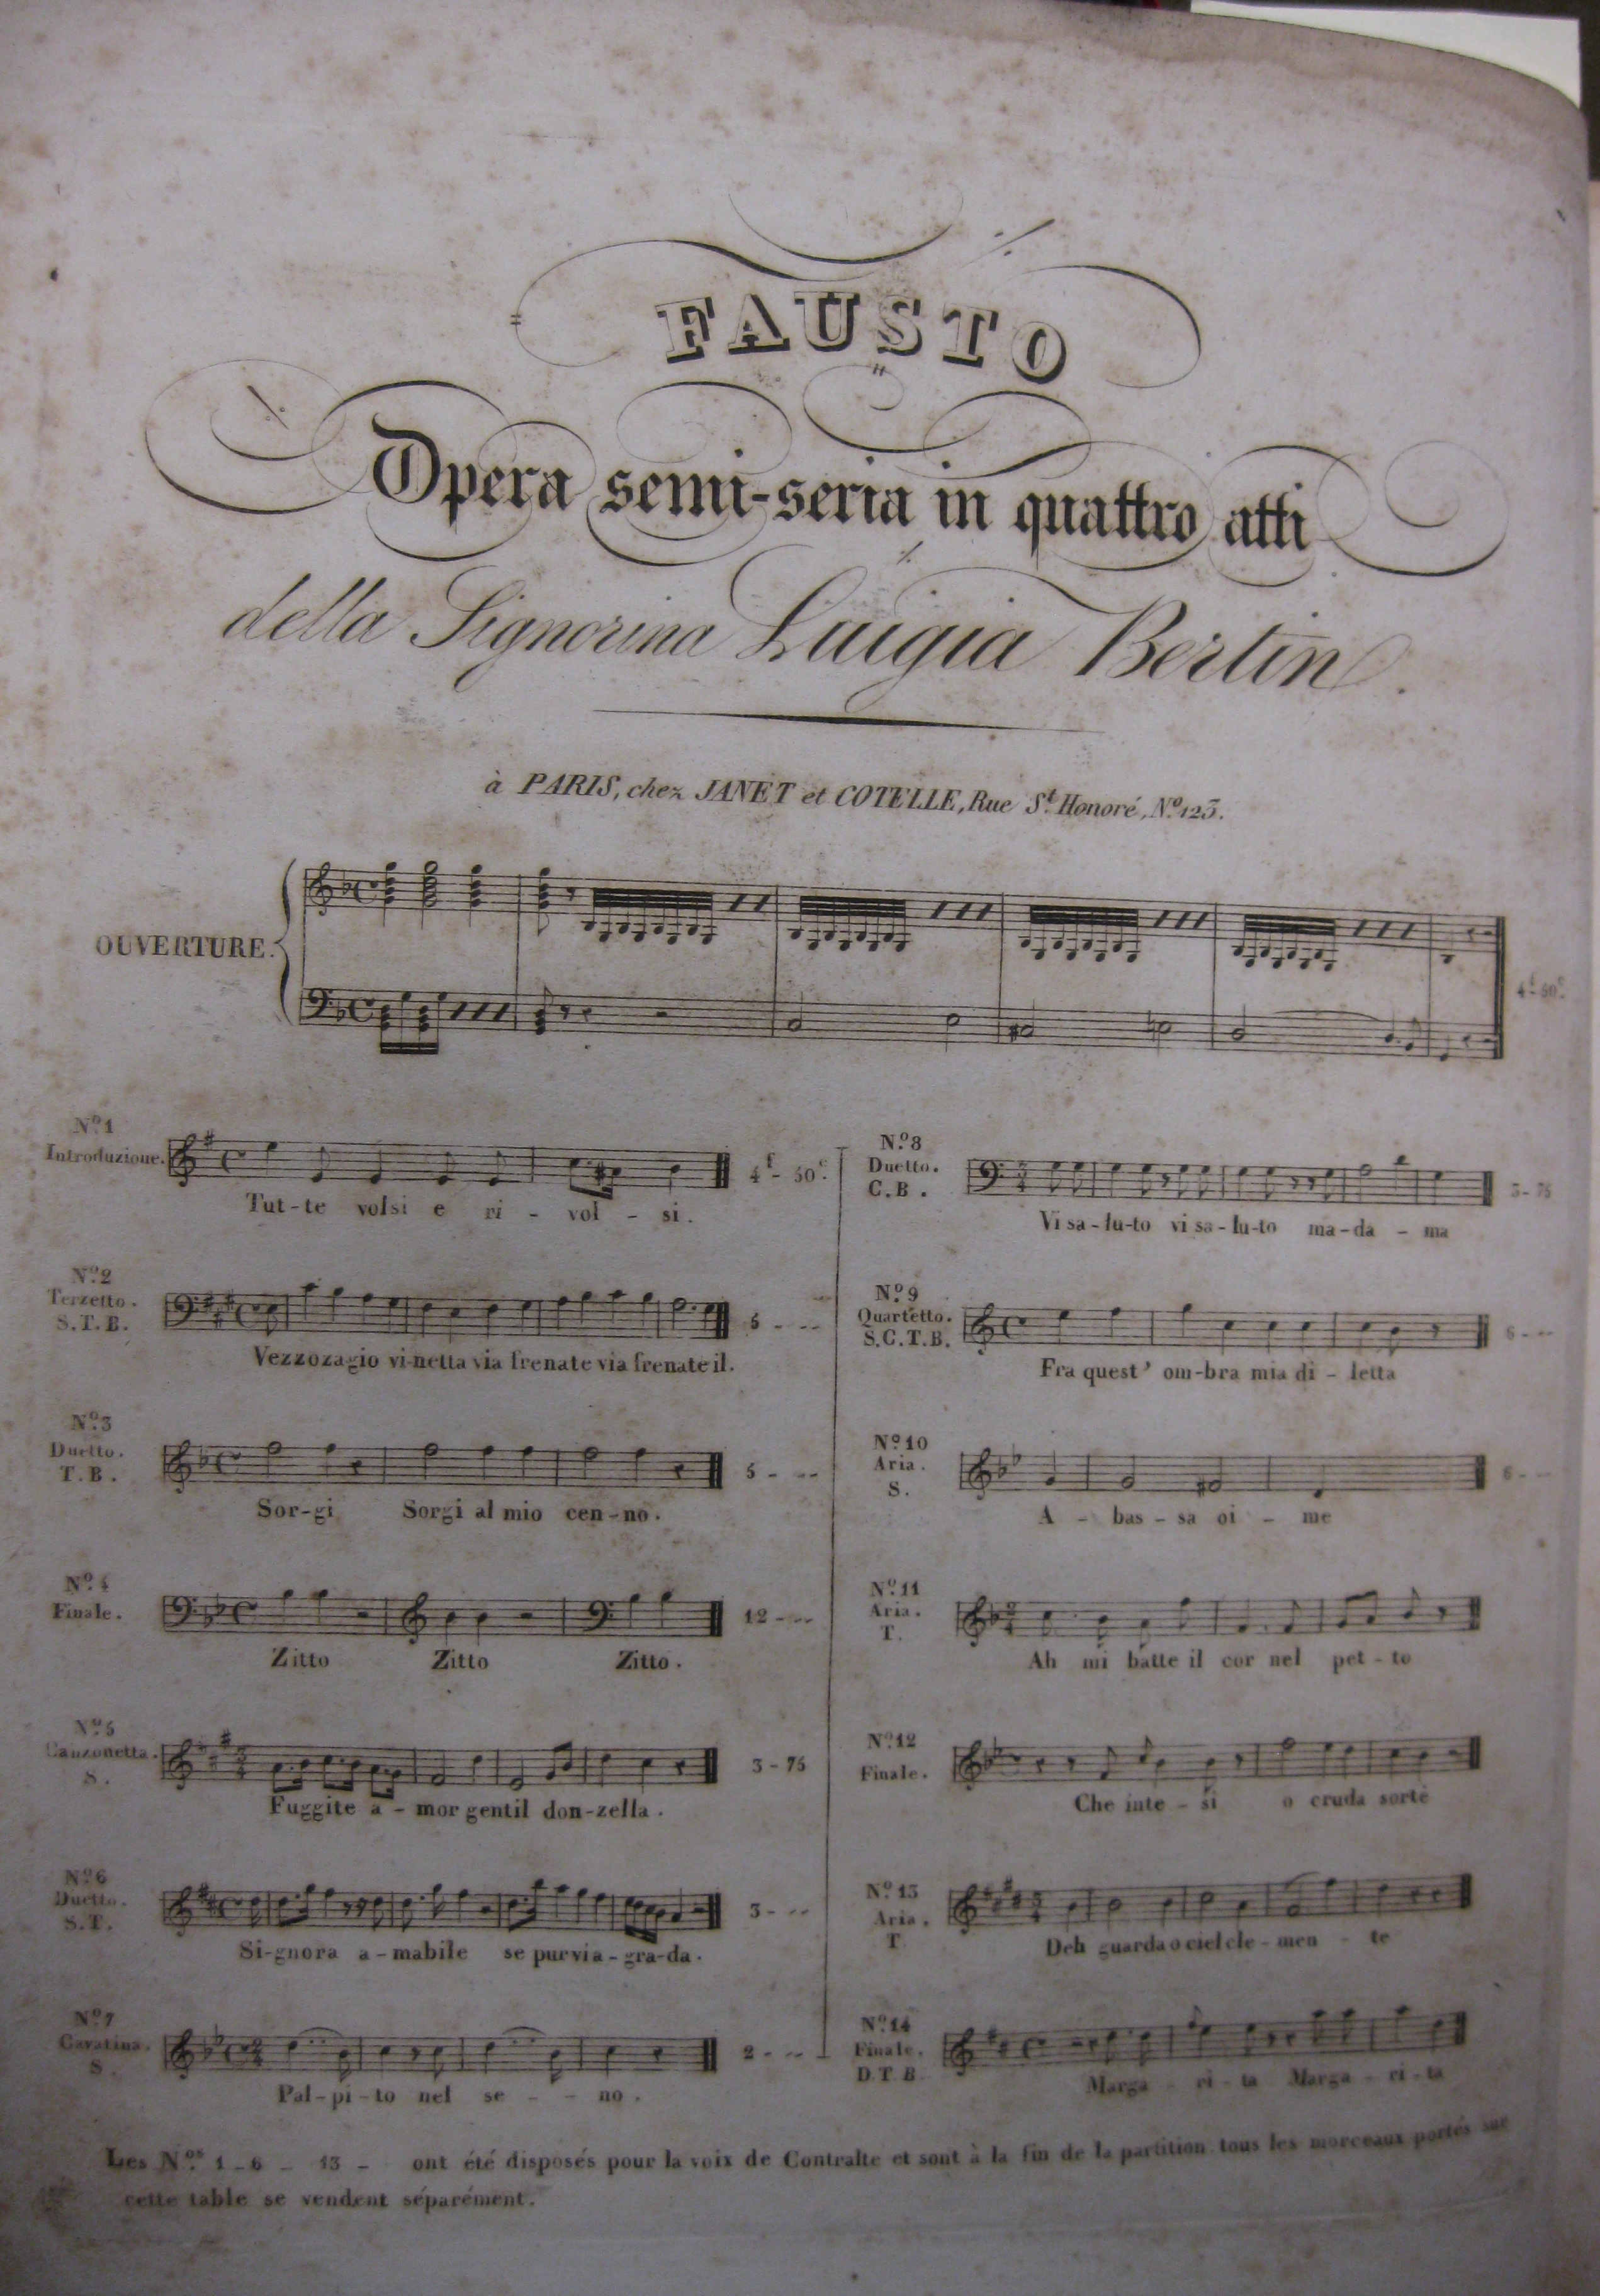 FAUSTO
Opera semi-seria in quattro atti
della Signorina Luigia Bertin.
à PARIS, chez JANET et COTELLE, Rue St. Honoré, No. 123.
OUVERTURE.
4f-50c.
No. 1
Introduzione.
Tut-te volsi e ri - vol - si.
4f-50c.
No. 2
Terzetto.
S.T.B.
Vezzozagio vi-netta via frenate via frenate il.
No. 3
Duetto.
T.B.
Sor-gi Sorgi al mio cen-no.
5 - --
No. 4
Finale.
Zitto Zitto Zitto.
12 - --
No. 5
Canzonetta.
S.
Fuggite a-mor gentil don-zella.
3-75
No. 6
Duetto.
S.T.
Si-gnora a-mabile se pur vi a-gra-da.
3 - --
No. 7
Cavatina.
S.
Pal-pi-to nel se - - no.
2 - --
No. 8
Duetto.
C.B.
Vi sa-lu-to vi sa-lu-to ma-da - ma
3-75
No. 9
Quartetto.
S.C.T.B.
Fra quest' om-bra mia di-letta
6 - --
No. 10
Aria.
S.
A - bas-sa oi - me
6 - --
No. 11
Aria.
T.
Ah mi batte il cor nel pet-to
No. 12
Finale.
Che inte-si o cruda sorte
No. 13
Aria.
T
Deh guarda o ciel cle-men - te
No. 14
Finale.
D.T.B.
Marga - ri-ta Marga-ri-ta
Les Nos. 1-6 - 13 - ont été disposés pour la voix de Contralte et sont à la fin de la partition. tous les morceaux portés sur
cette table se vendent séparément.